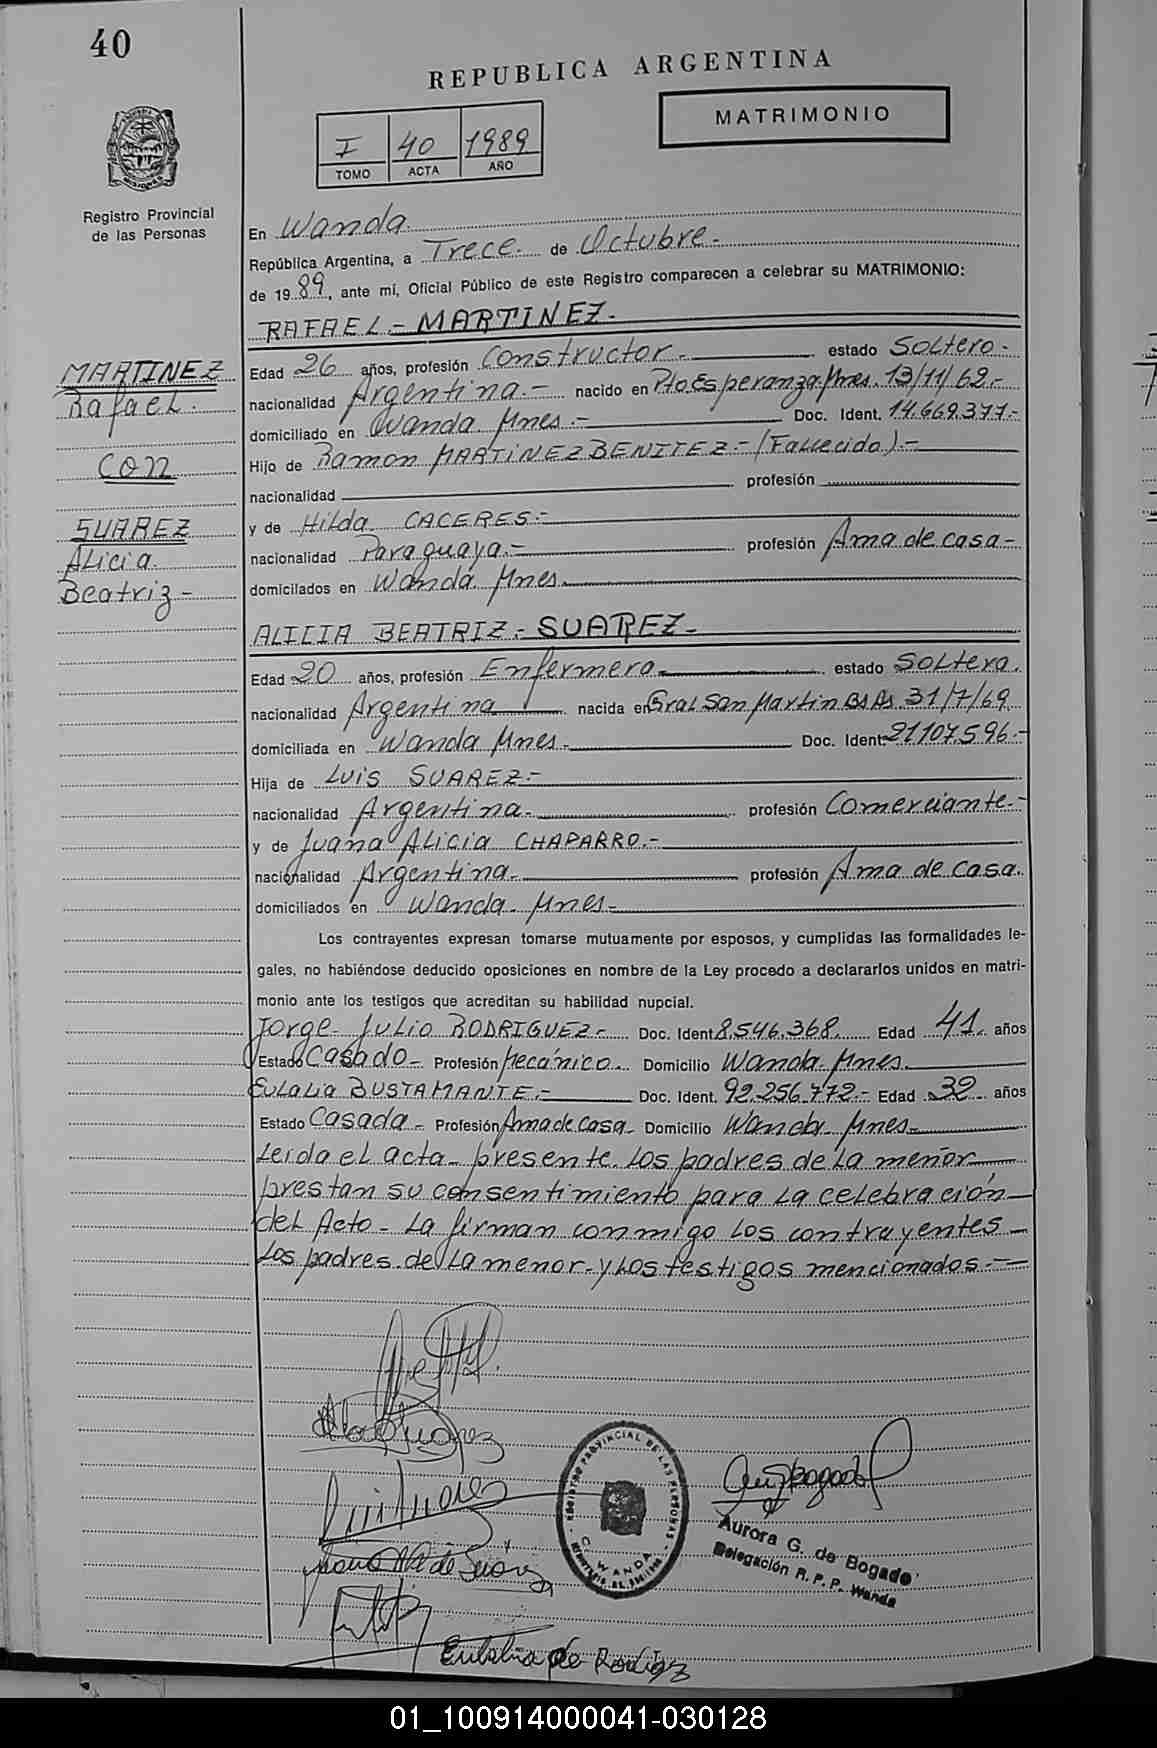 40
REPUBLICA ARGENTINA
MATRIMONIO
I 40 1989
TOMO ACTA AÑO
Registro Provincial
de las Personas
En Wanda.
República Argentina, a Trece. de Octubre.-
de 1989, ante mí, Oficial Público de este Registro comparecen a celebrar su MATRIMONIO:
RAFAEL.- MARTINEZ.-
MARTINEZ
Rafael.
con
SUAREZ
Alicia.
Beatriz-
Edad 26 años, profesión Constructor.- estado Soltero.-
nacionalidad Argentina.- nacido en Pto Esperanza. Mnes. 13/11/62.-
domiciliado en Wanda. Mnes.- Doc. Ident. 14.669.377.-
Hijo de Ramon MARTINEZ BENITEZ.- (Fallecido).-
nacionalidad profesión
y de Hilda CACERES.-
nacionalidad Paraguaya.- profesión Ama de casa-
domicilados en Wanda Mnes.
ALICIA BEATRIZ.- SUAREZ.-
Edad 20 años, profesión Enfermera. estado Soltera.
nacionalidad Argentina nacida en Gral San Martin Bs As. 31/7/69
domiciliada en Wanda Mnes.- Doc. Ident. 21107.596.-
Hija de Luis SUAREZ.-
nacionalidad Argentina.- profesión Comerciante.-
y de Juana Alicia CHAPARRO.-
nacionalidad Argentina.- profesión Ama de casa.
domiciliados en Wanda. Mnes-
Los contrayentes expresan tomarse mutuamente por esposos, y cumplidas las formalidades le-
gales, no habiéndose deducido oposiciones en nombre de la Ley procedo a declararlos unidos en matri-
monio ante los testigos que acreditan su habilidad nupcial.
Jorge Julio RODRIGUEZ.- Doc. Ident 8.546.368. Edad 41. años
Estado Casado- Profesión Mecánico. Domicilio Wanda. Mnes.
Eulalia BUSTAMANTE.- Doc. Ident. 92.256.772.- Edad 32 años
Estado Casada- Profesión Ama de casa- Domicilio Wanda. Mnes-
Leida el acta- presente. Los padres de la menor
prestan su consentimiento para la celebración
del Acto- La firman conmigo los contrayentes-
Los padres de la menor- y Los testigos mencionados.-
REGISTRO PROVINCIAL DE LAS PERSONAS
WANDA
Aurora G. de Bogado
Delegación R. P. P. Wanda
Eulalia de Rodriguez
01_100914000041-030128